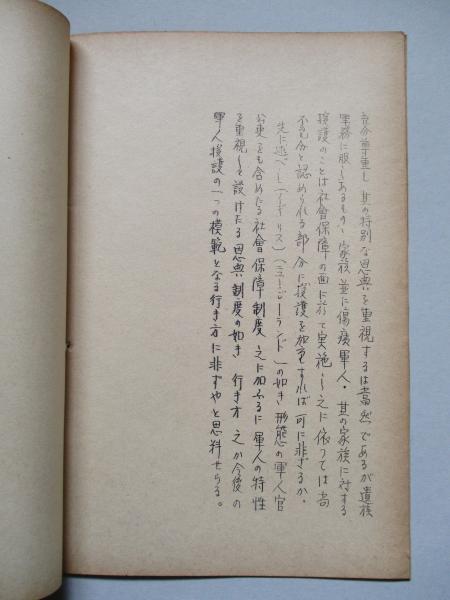 充分尊重し其の特別な恩典を重視するは当然であるが遺族
軍務に服しあるものゝ家族並に傷痍軍人・其の家族に対する
援護のことは社會保障の面に於て実施し之に依つては尚
不充分と認められる部分に援護を加重すれば可に非ざるか、
先に述べし(イギリス)(ニュージーランド)の如き形態の軍人官
公吏をも含めたる社會保障制度之に加ふるに軍人の特性
を重視して設けたる恩典制度の如き行き方之が今後の
軍人援護の一つの模範となる行き方に非ずやと思料せらる。